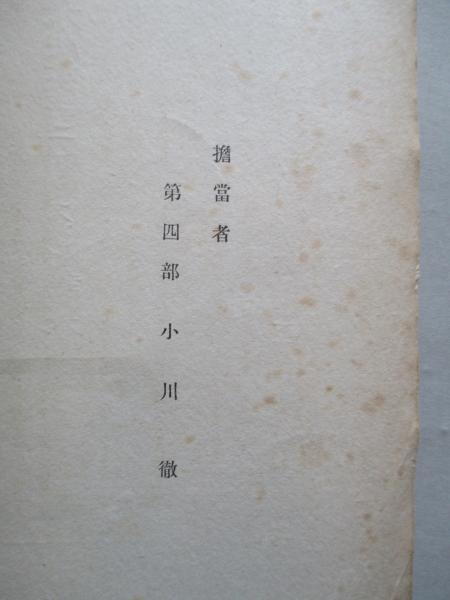 擔當者
第四部 小川徹